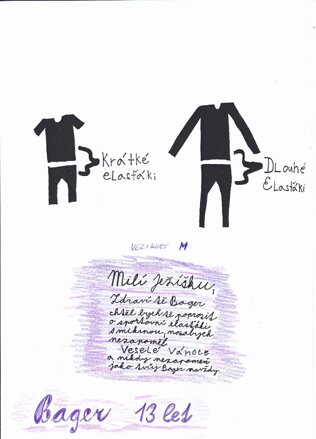 Krátké
elasťáki
Dlouhé
Elasťáki
VELIKOST M
Milí Ježíšku,
Zdraví tě Bager
chtěl bych tě poprosit
o sportovní elasťáki
s mikinou,
nezapoměl
Veselé Vánoce
a nikdy nezapomeň
jako tvůj Bager navždy.
Bager 13 let